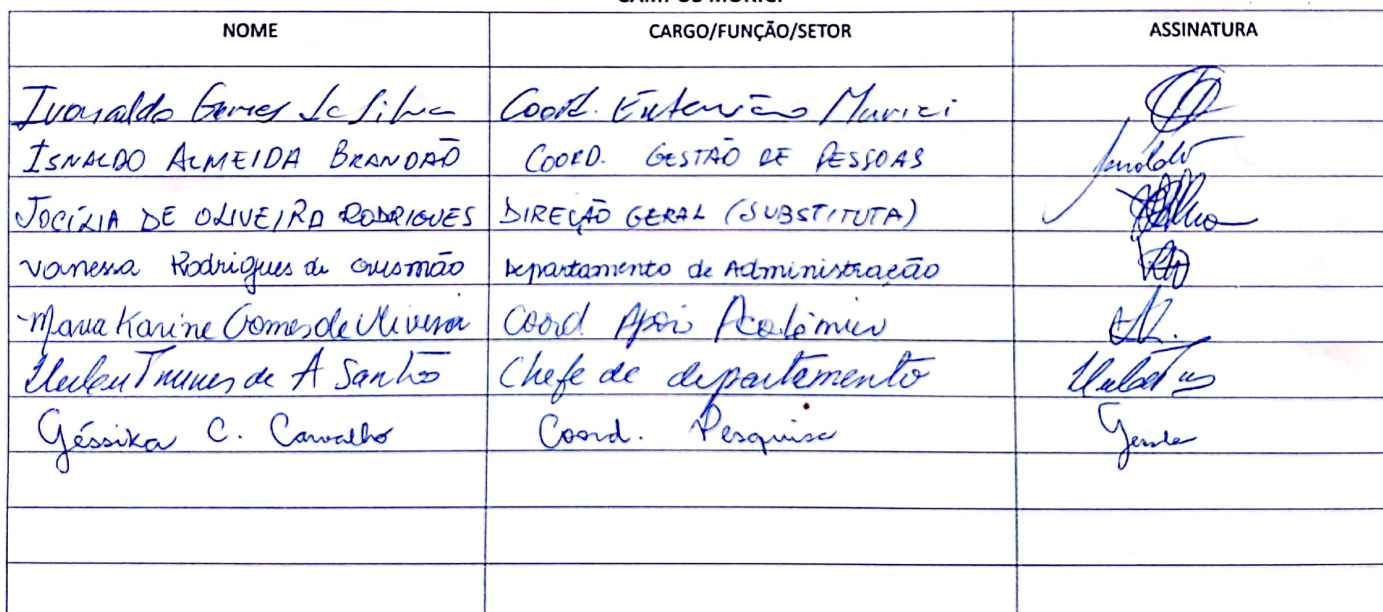 CAMPUS MURICI
NOME CARGO/FUNÇÃO/SETOR ASSINATURA
Ivonaldo Gomes da Silva Coord. Extensão Murici
ISNALDO ALMEIDA BRANDÃO COORD. GESTÃO DE PESSOAS
JOCÍLIA DE OLIVEIRA RODRIGUES DIREÇÃO GERAL (SUBSTITUTA)
Vanessa Rodrigues de Gusmão Departamento de Administração
Maria Karine Gomes de Oliveira Coord Apoio Acadêmico
de A Santos Chefe de departamento
Géssika C. Carvalho Coord. Pesquisa